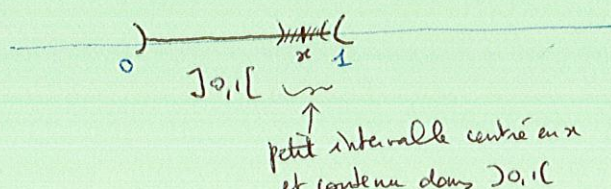 0 x 1
]0,1[
petit intervalle centré en x
et contenu dans ]0,1[